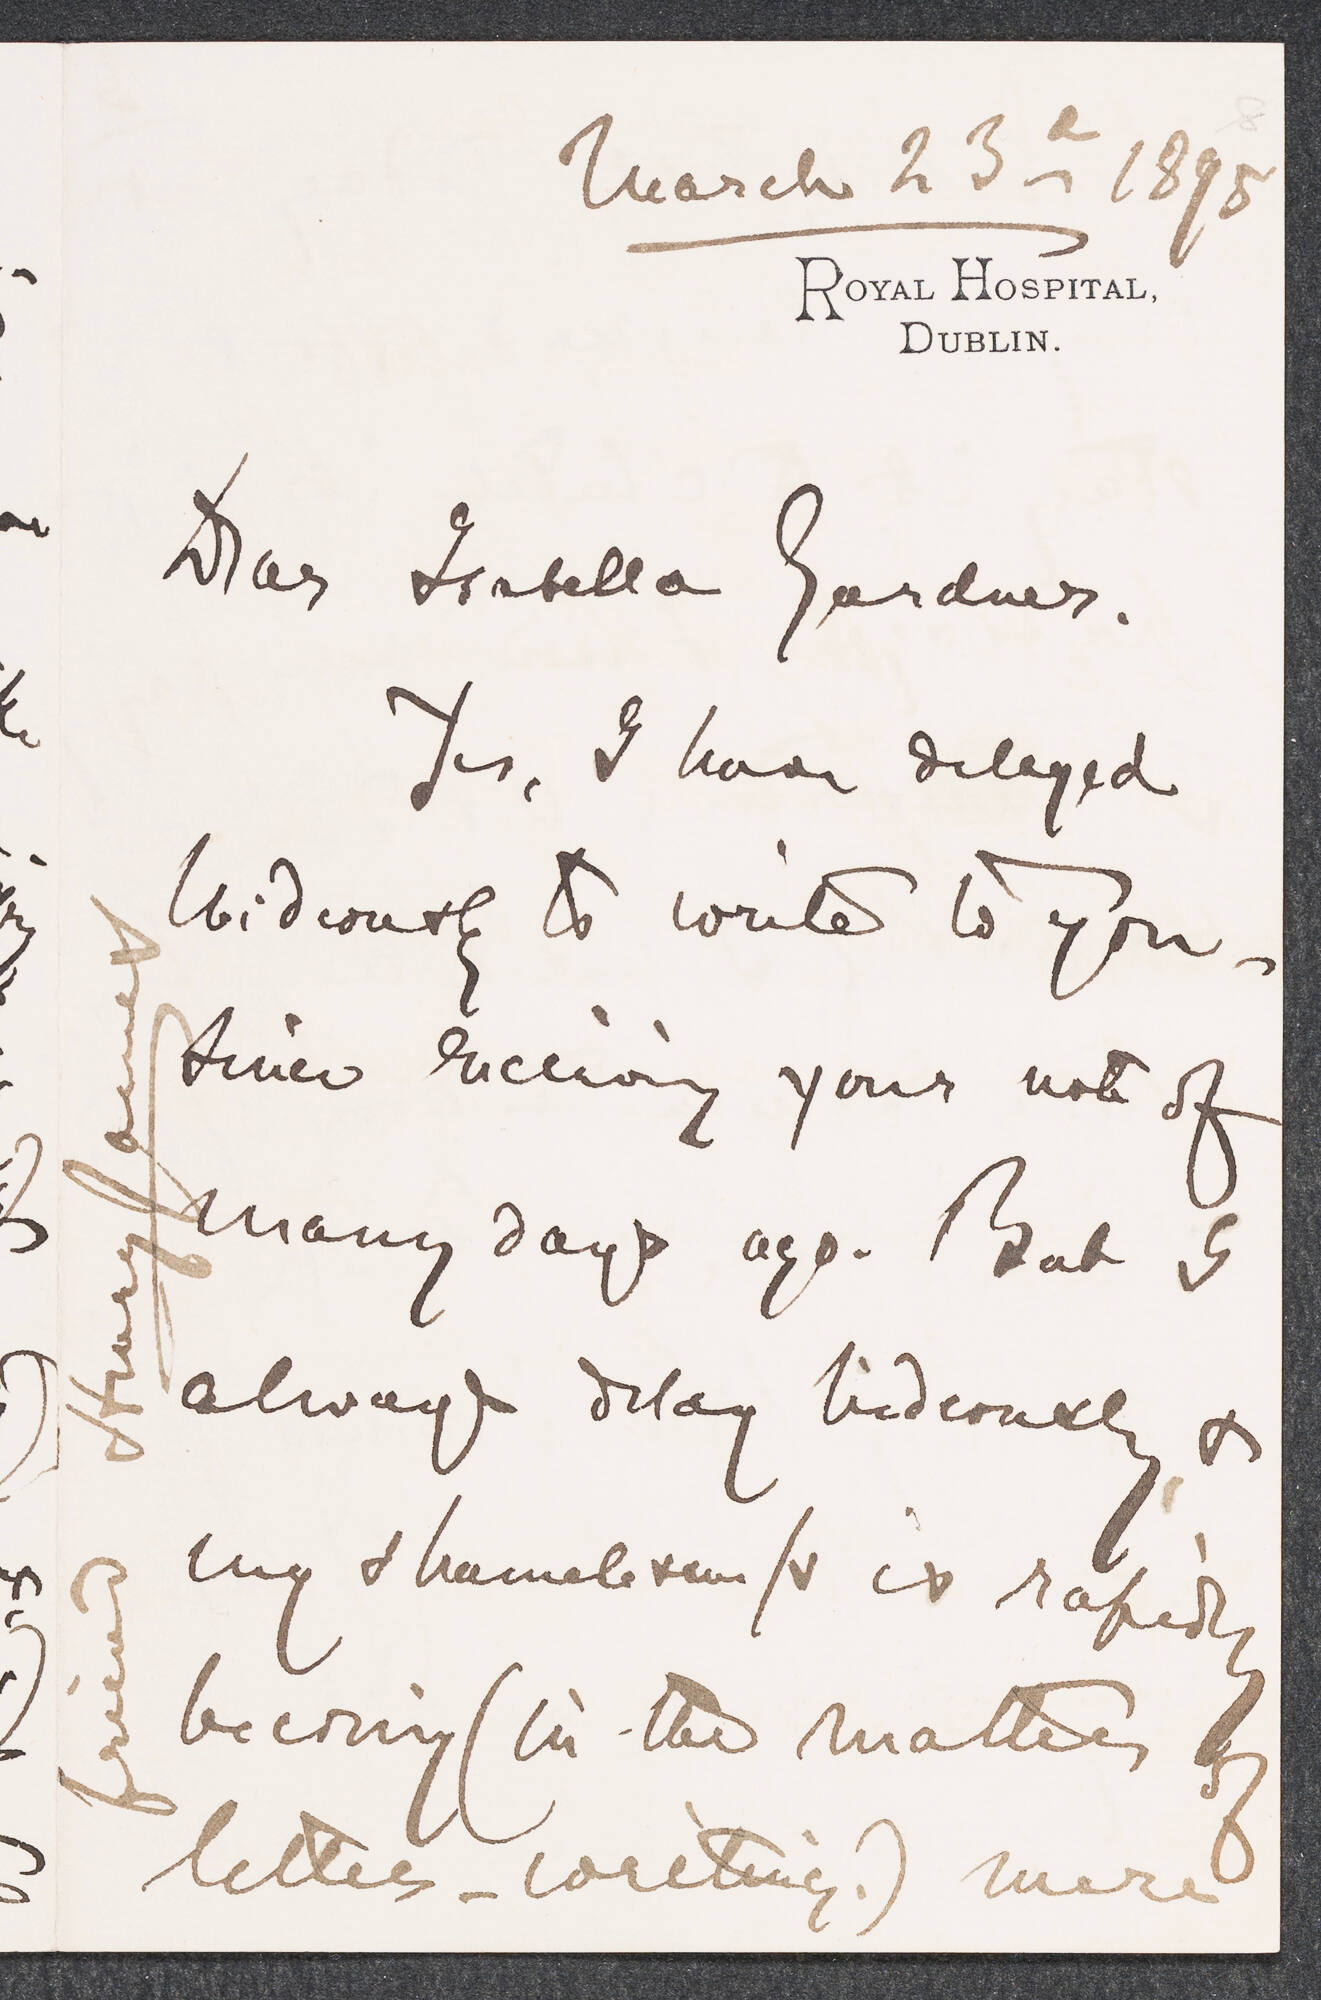 March 23d 1895
ROYAL HOSPITAL,
DUBLIN.
Dear Isabella Gardner.
Yes, I have delayed
hideously to write to you—
since receiving your note of
many days ago. But I
always delay hideously, &
my shamelessness is rapidly
becoming (in the matter of
letter-writing.) more
friend Henry James